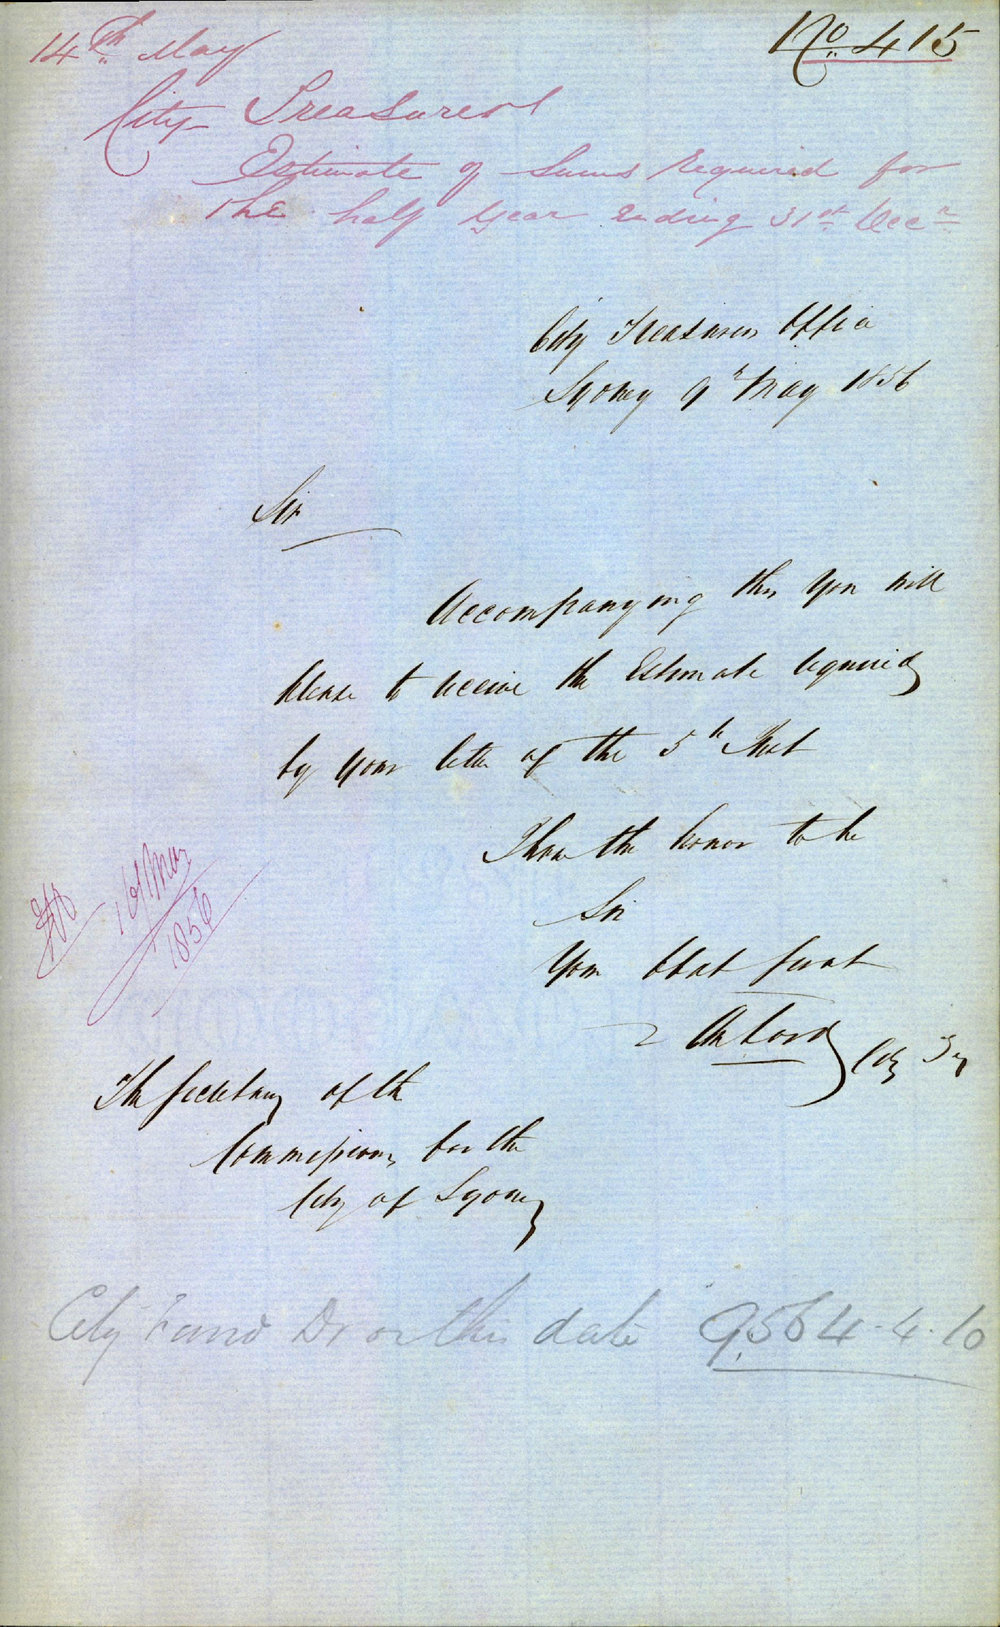 14th May
No. 415
City Treasurer
Estimate of Sums required for
the half year ending 31st Decr
City Treasurers Office
Sydney 9th May 1856
Sir
Accompanying this you will
please to receive the Estimate required
by your letter of the 5th Inst
I have the honor to be
Sir
Your Obdt Servt
City Tr
16 May
1856
The Secretary of the
Commissioners for the
City of Sydney
City Fund Dr on this date 9564.4.10